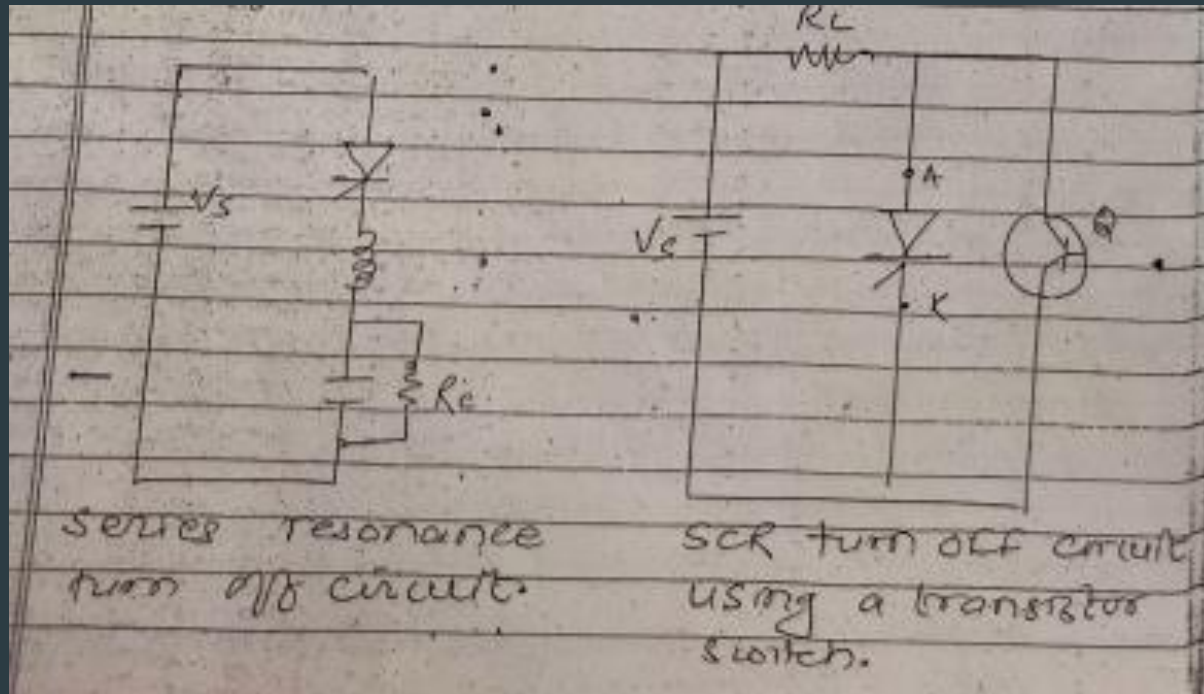 RL
Vs
A
Vc
Q
K
Rc
series resonance
turn off circuit.
SCR turn off circuit
using a transistor
switch.